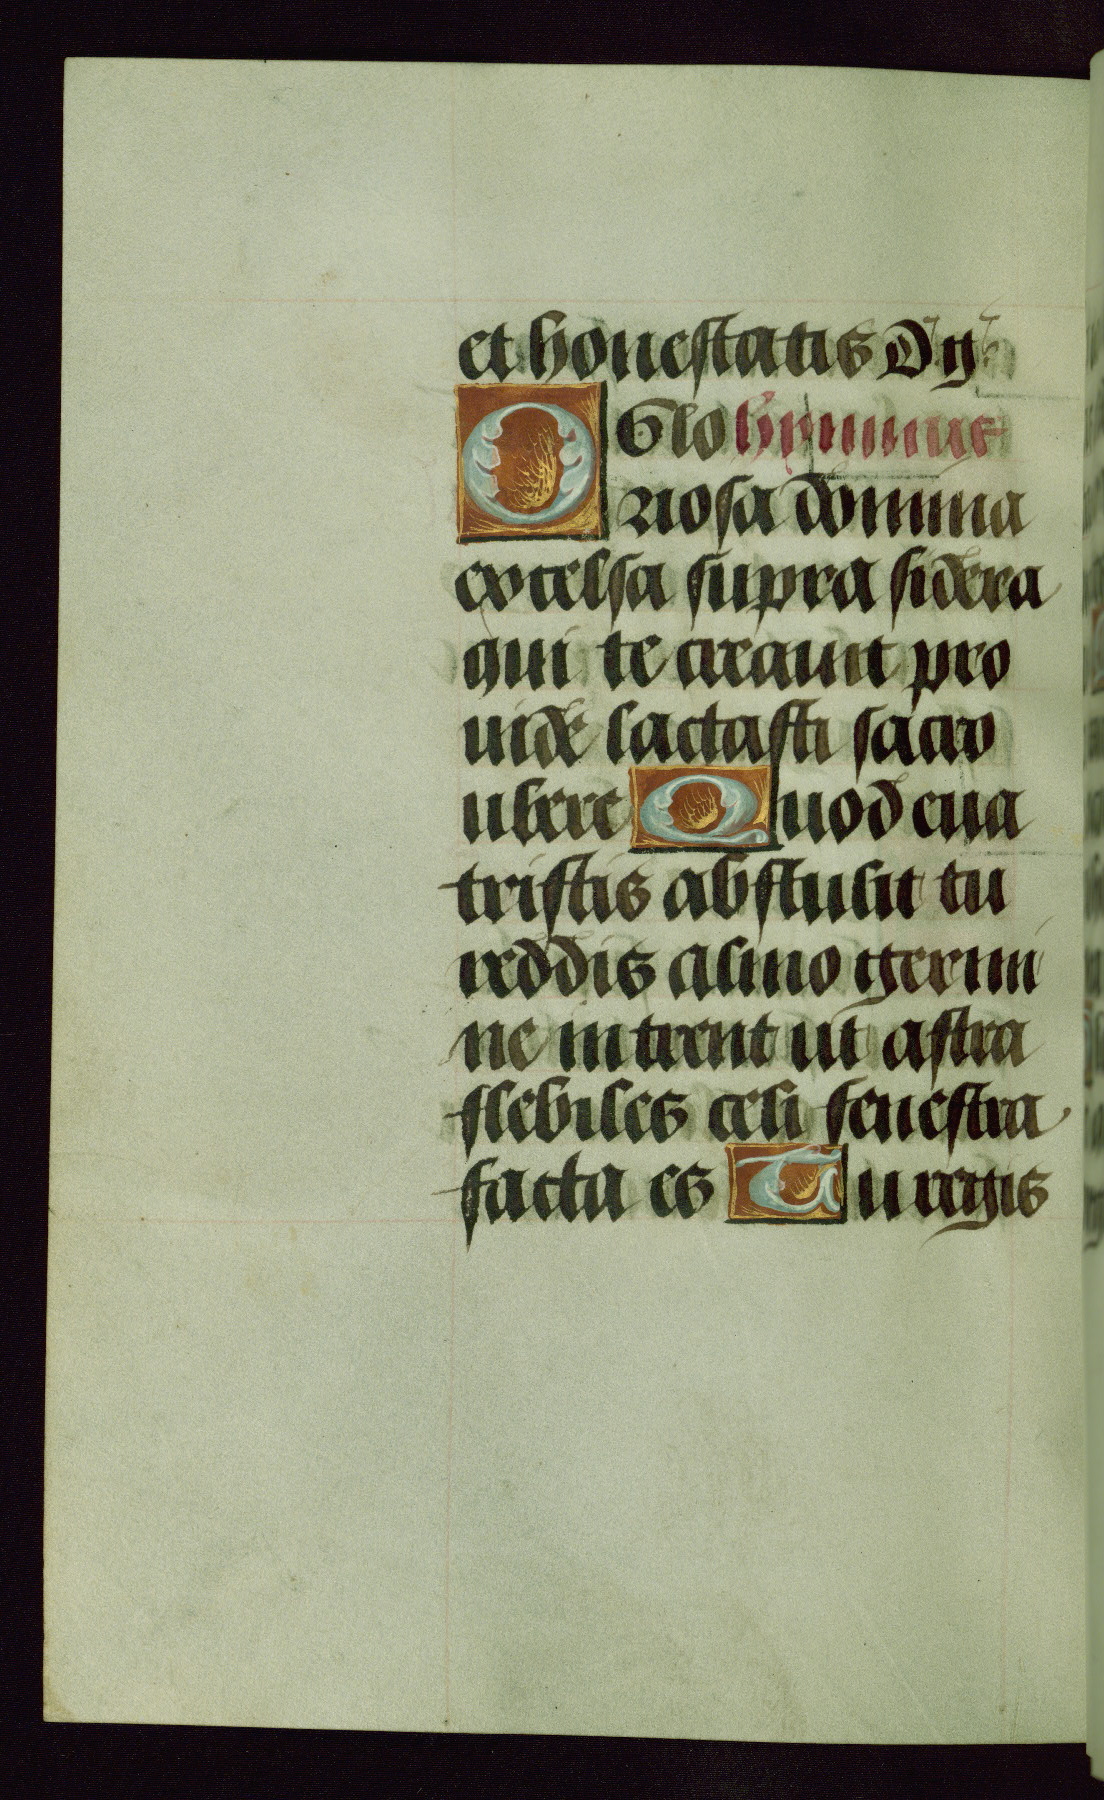 et honestatis D y
O Glo hympnus
riosa domina
excelsa supra sidera
qui te creauit pro
uide lactasti sacro
ubere Quod eua
tristis abstulit tu
reddis almo germi
ne intrent ut astra
flebiles celi fenestra
facta es Tu regis